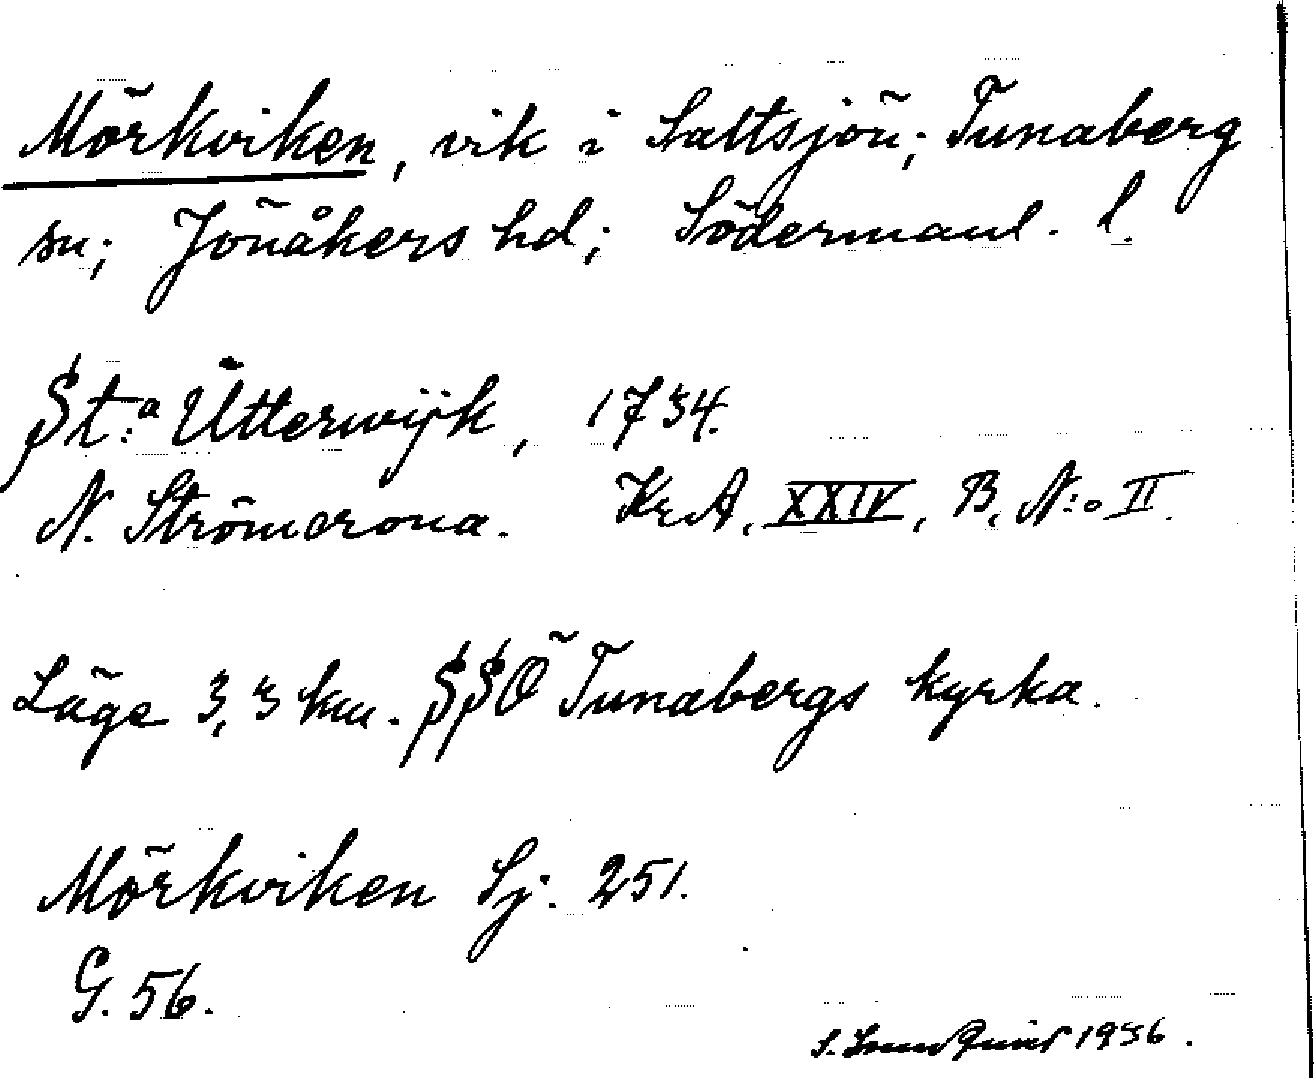 Mörkviken, vik i Saltsjön; Tunaberg
sn; Jönåkers hd; Södermanl. l.
St:a Utterwijk, 1734.
N. Strömcrona. KrA, XXIV, B, N:o II.
Läge 3,3 km. SSO Tunabergs kyrka.
Mörkviken Sj. 251.
G. 56.
S. 1936.